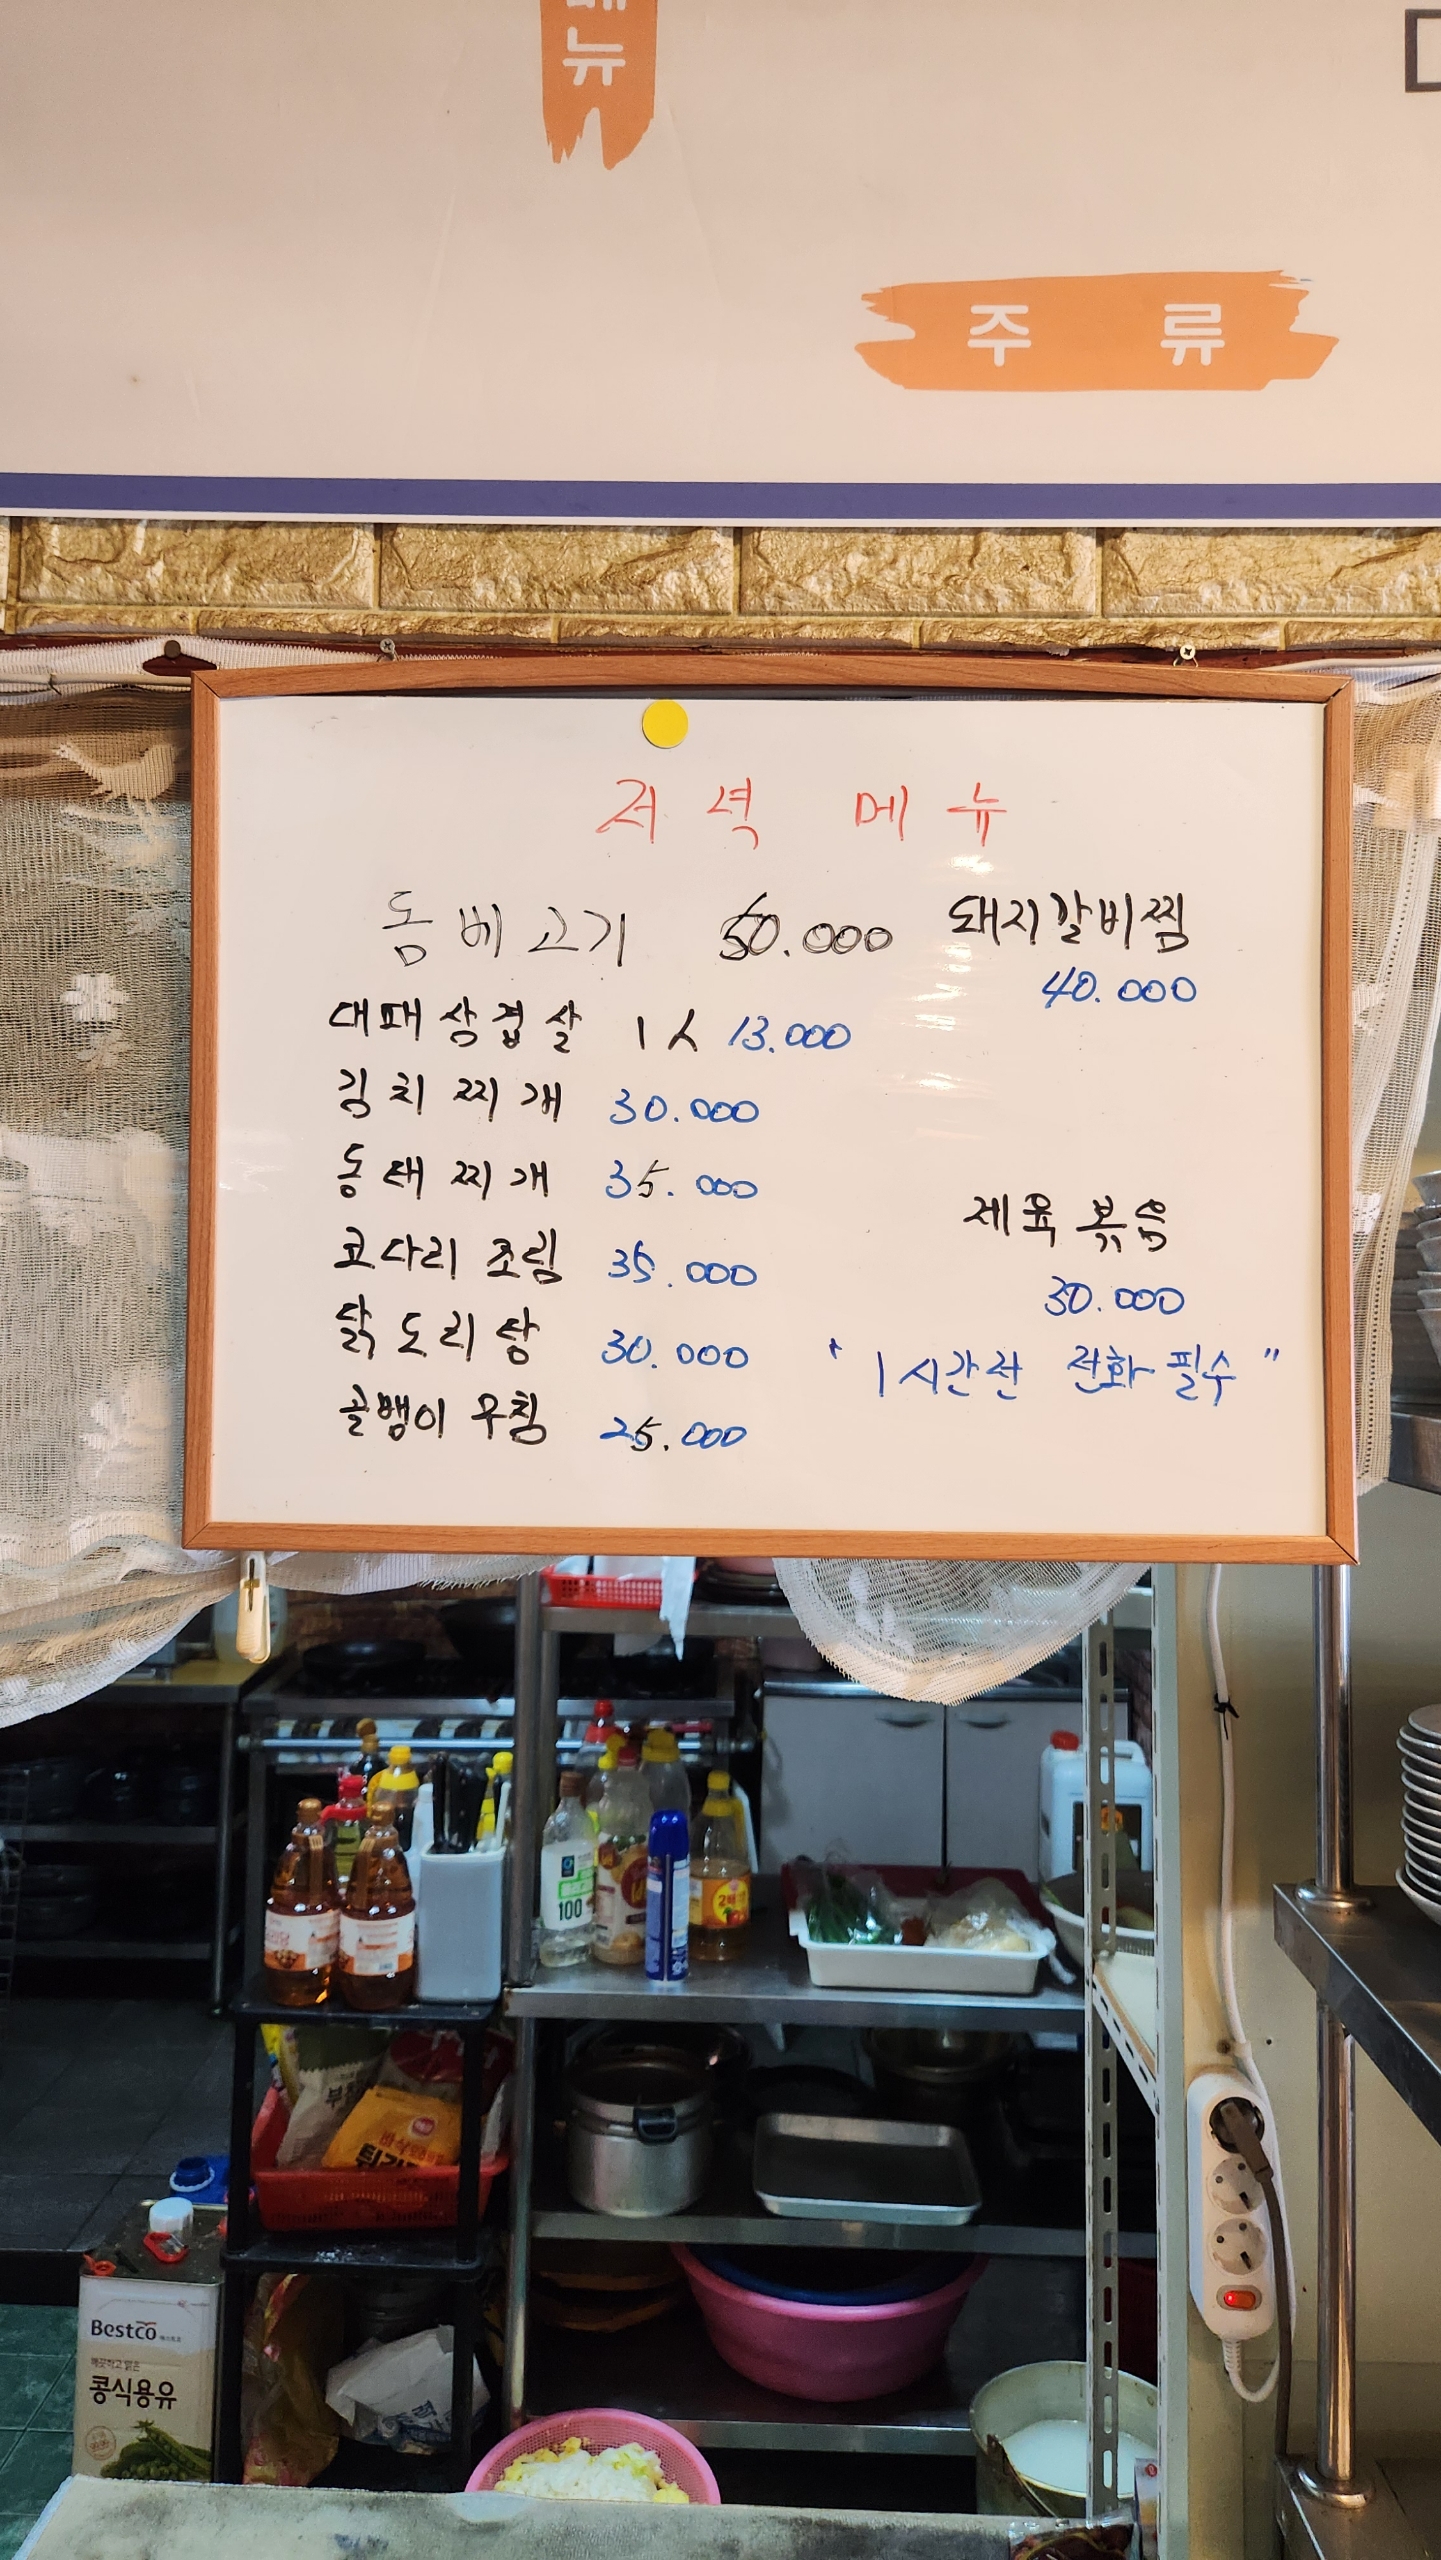 뉴
주 류
저녁 메뉴
돔베고기 50.000
돼지갈비찜
40.000
대패삼겹살 1人 13.000
김치찌개 30.000
동태찌개 35.000
코다리 조림 35.000
닭도리탕 30.000
골뱅이 무침 25.000
제육볶음
30.000
" 1시간전 전화 필수 "
100
Bestco
깨끗하고 맑은
콩식용유